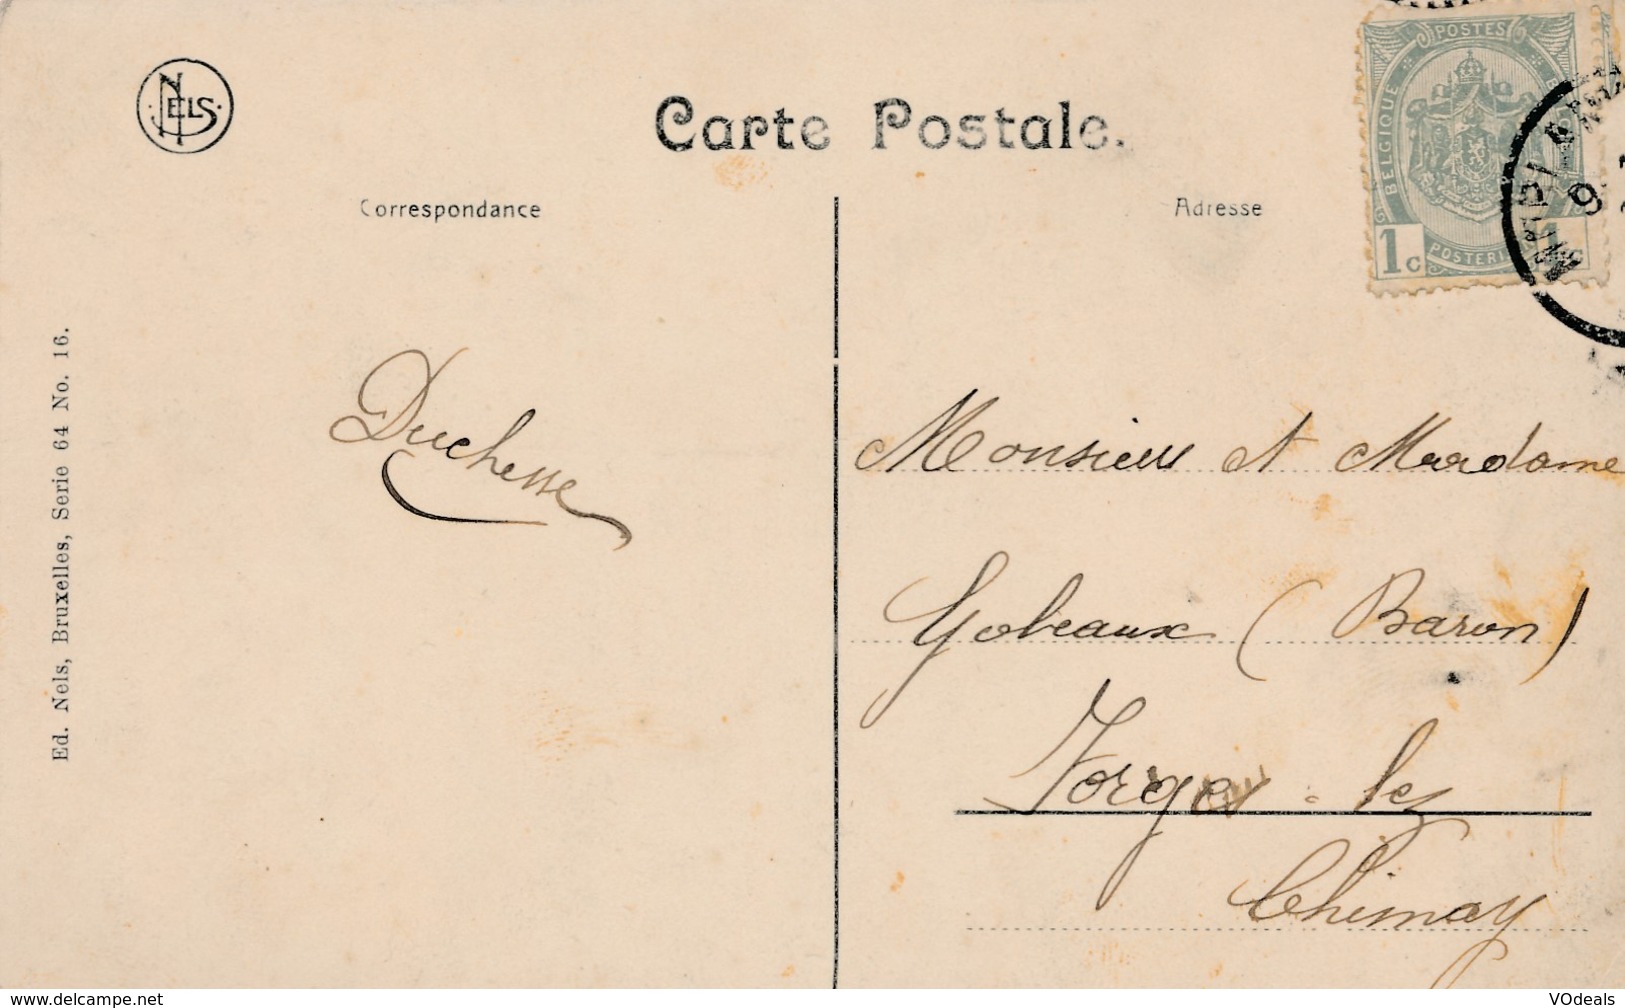 NELS
Carte Postale.
POSTES
BELGIQUE
1c
1c
Correspondance
Adresse
Ed. Nels, Bruxelles, Serie 64 No. 16.
Duchesse
Monsieur et Madame
Gobeaux (Baron)
Forges-lez
Chimay
www.delcampe.net
VOdeals